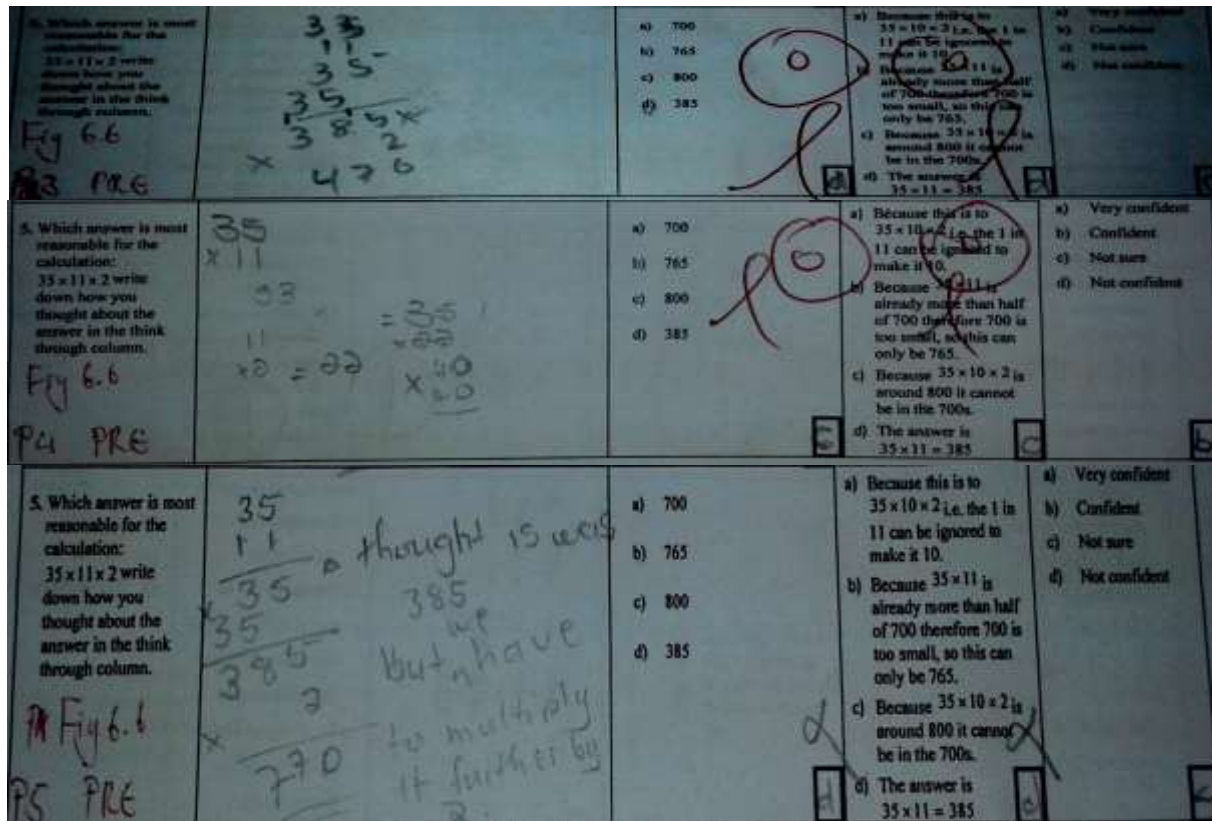 5. Which answer is most
reasonable for the
calculation:
35 × 11 × 2 write
down how you
thought about the
answer in the think
through column.
Fig 6.6
PRE
35
11
35
35
385
× 2
a) 700
b) 765
c) 800
d) 385
a) Because this is to
35 × 10 × 2 i.e. the 1 in
11 can be ignored to
make it 10.
b) Because 35 × 11 is
already more than half
of 700 therefore 700 is
too small, so this can
only be 765.
c) Because 35 × 10 × 2 is
around 800 it cannot
be in the 700s.
d) The answer is
35 × 11 = 385
d
d
a) Very confident
b) Confident
c) Not sure
d) Not confident
5. Which answer is most
reasonable for the
calculation:
35 × 11 × 2 write
down how you
thought about the
answer in the think
through column.
Fig 6.6
P4 PRE
35
× 11
11
×2 = 22
= 35
× 40
a) 700
b) 765
c) 800
d) 385
a) Because this is to
35 × 10 × 2 i.e. the 1 in
11 can be ignored to
make it 10.
b) Because 35 × 11 is
already more than half
of 700 therefore 700 is
too small, so this can
only be 765.
c) Because 35 × 10 × 2 is
around 800 it cannot
be in the 700s.
d) The answer is
35 × 11 = 385
c
a) Very confident
b) Confident
c) Not sure
d) Not confident
b
5. Which answer is most
reasonable for the
calculation:
35 × 11 × 2 write
down how you
thought about the
answer in the think
through column.
Fig 6.6
P5 PRE
35
11
35
× 35
385
2
×
770
thought is was
385
but we have
to multiply
it further by
2.
a) 700
b) 765
c) 800
d) 385
d
a) Because this is to
35 × 10 × 2 i.e. the 1 in
11 can be ignored to
make it 10.
b) Because 35 × 11 is
already more than half
of 700 therefore 700 is
too small, so this can
only be 765.
c) Because 35 × 10 × 2 is
around 800 it cannot
be in the 700s.
d) The answer is
35 × 11 = 385
d
a) Very confident
b) Confident
c) Not sure
d) Not confident